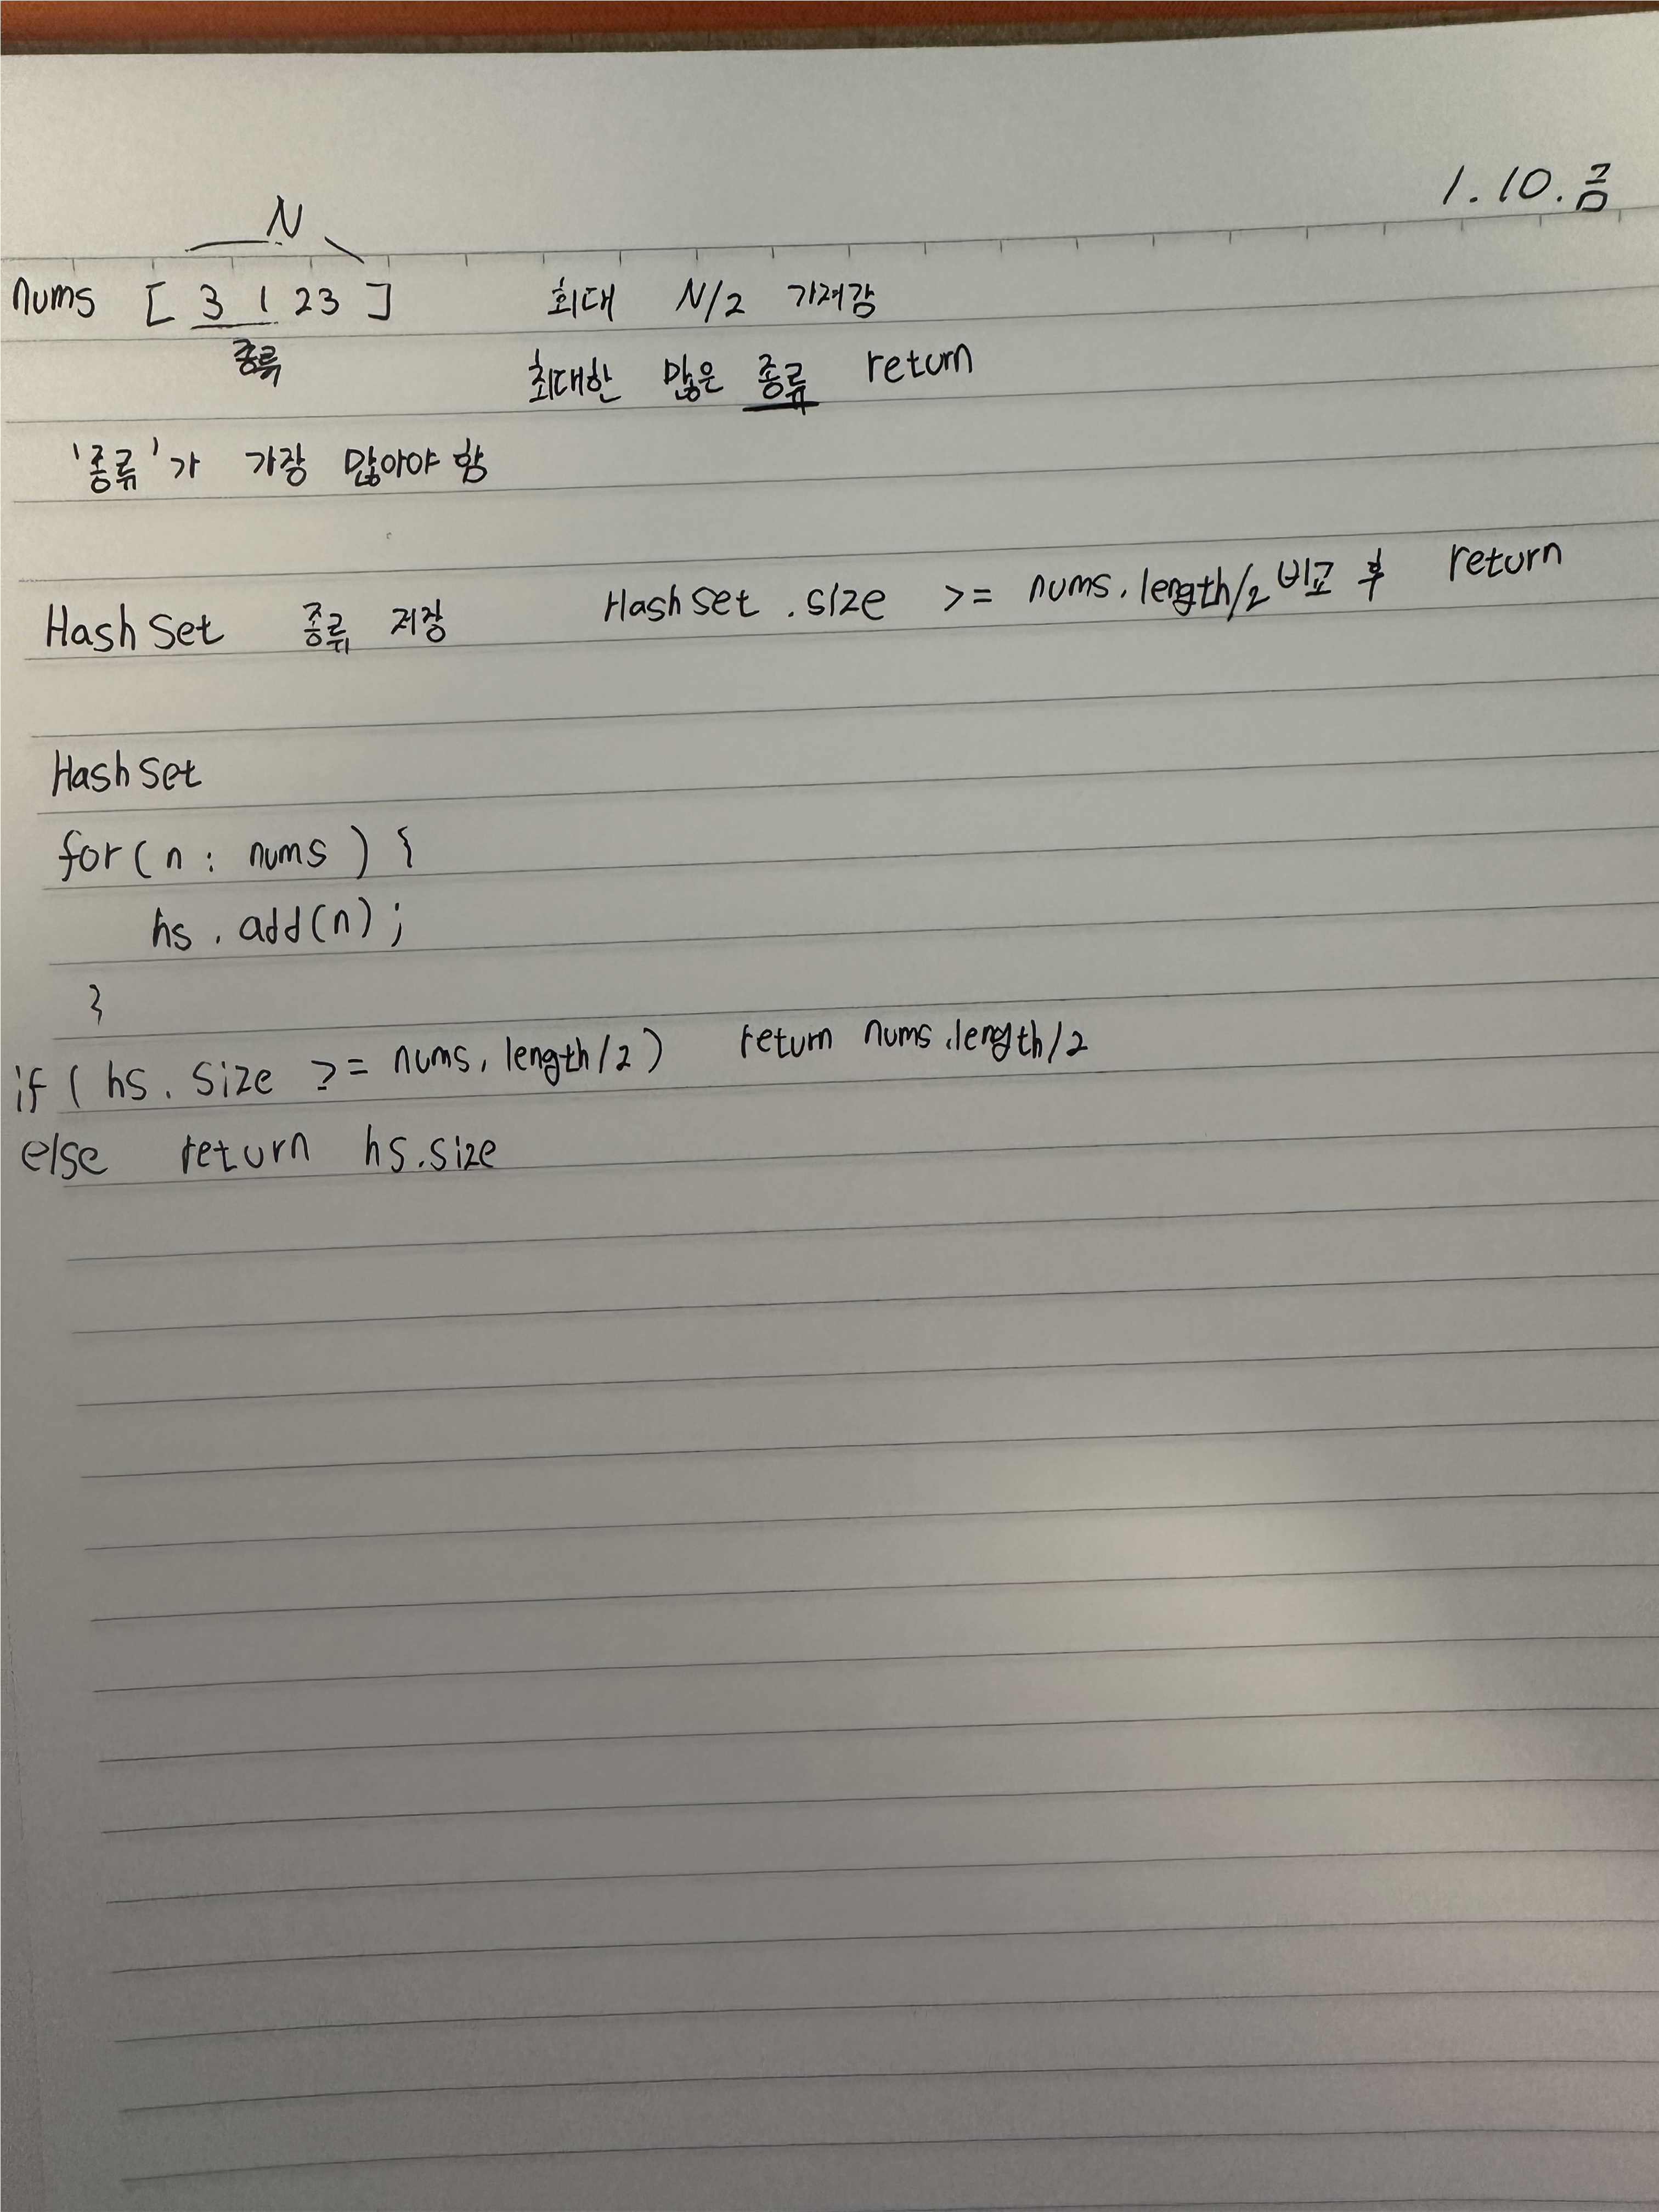 1.10.금
N
nums [ 3 1 23 ] 최대 N/2 가져감
종류
최대한 많은 종류 return
'종류'가 가장 많아야 함
HashSet 종류 저장 HashSet.size >= nums.length/2 비교 후 return
HashSet
for(n : nums) {
hs.add(n);
}
if (hs.size >= nums.length/2) return nums.length/2
else return hs.size